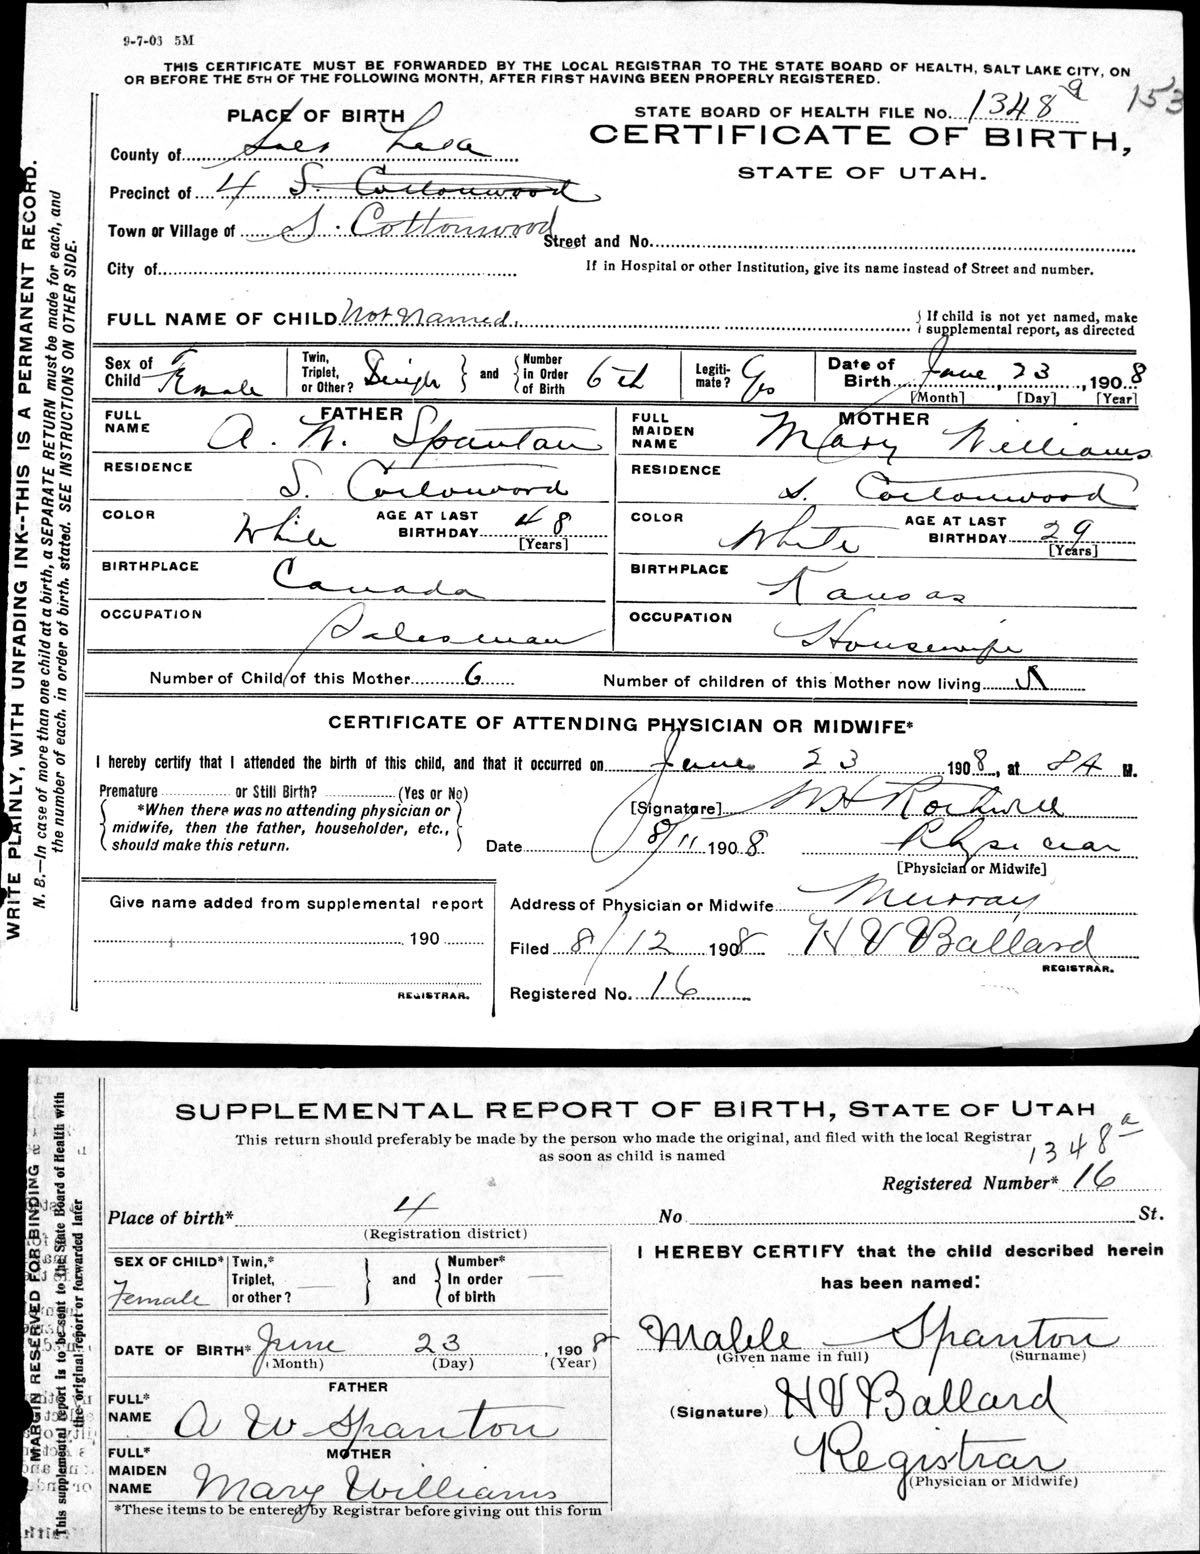 9-7-03 5M
THIS CERTIFICATE MUST BE FORWARDED BY THE LOCAL REGISTRAR TO THE STATE BOARD OF HEALTH, SALT LAKE CITY, ON
OR BEFORE THE 5TH OF THE FOLLOWING MONTH, AFTER FIRST HAVING BEEN PROPERLY REGISTERED.
153
WRITE PLAINLY, WITH UNFADING INK--THIS IS A PERMANENT RECORD.
N. B.—In case of more than one child at a birth, a SEPARATE RETURN must be made for each, and
the number of each, in order of birth, stated. SEE INSTRUCTIONS ON OTHER SIDE.
PLACE OF BIRTH
STATE BOARD OF HEALTH FILE NO. 1348 a
CERTIFICATE OF BIRTH,
STATE OF UTAH.
County of Salt Lake
Precinct of 4 S. Cottonwood
Town or Village of S. Cottonwood
Street and No.
City of
If in Hospital or other Institution, give its name instead of Street and number.
FULL NAME OF CHILD Not Named.
If child is not yet named, make
supplemental report, as directed
Sex of Child Female
Twin, Triplet, or Other? Single and Number in Order of Birth 6th
Legiti-mate? Yes
Date of Birth June, 23, 1908
[Month] [Day] [Year]
FATHER
FULL NAME A. W. Spanton
RESIDENCE S. Cottonwood
COLOR White AGE AT LAST BIRTHDAY 48
[Years]
BIRTHPLACE Canada
OCCUPATION Salesman
MOTHER
FULL MAIDEN NAME Mary Williams
RESIDENCE S. Cottonwood
COLOR White AGE AT LAST BIRTHDAY 29
[Years]
BIRTHPLACE Kansas
OCCUPATION Housewife
Number of Child of this Mother 6 Number of children of this Mother now living 5
CERTIFICATE OF ATTENDING PHYSICIAN OR MIDWIFE*
I hereby certify that I attended the birth of this child, and that it occurred on June 23 1908, at 8A M.
Premature or Still Birth? (Yes or No)
*When there was no attending physician or
midwife, then the father, householder, etc.,
should make this return.
[Signature] W H Rothwell
Date 8/11 1908 Physician
[Physician or Midwife]
Give name added from supplemental report
190
REGISTRAR.
Address of Physician or Midwife Murray
Filed 8/12 1908 H V Ballard
REGISTRAR.
Registered No. 16
MARGIN RESERVED FOR BINDING
This supplemental report is to be sent to the State Board of Health with
the original report or forwarded later
SUPPLEMENTAL REPORT OF BIRTH, STATE OF UTAH
This return should preferably be made by the person who made the original, and filed with the local Registrar
as soon as child is named
1348 a
Registered Number* 16
Place of birth* 4 No St.
(Registration district)
SEX OF CHILD* Female
Twin,* Triplet, or other? — and Number* In order of birth —
DATE OF BIRTH* June 23, 1908
(Month) (Day) (Year)
FATHER
FULL* NAME A W Spanton
MOTHER
FULL* MAIDEN NAME Mary Williams
*These items to be entered by Registrar before giving out this form
I HEREBY CERTIFY that the child described herein
has been named:
Mable Spanton
(Given name in full) (Surname)
(Signature) H V Ballard
Registrar
(Physician or Midwife)